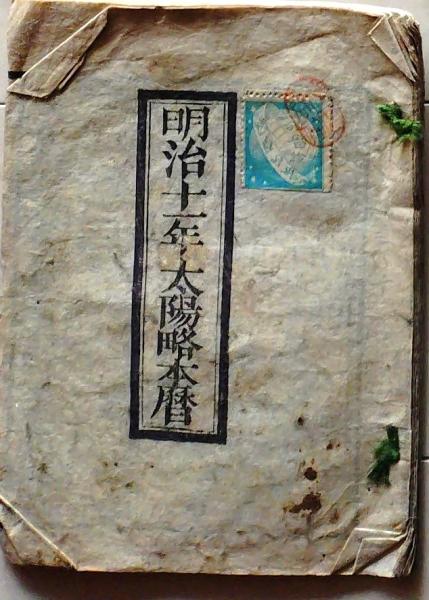 明治十一年太陽略本暦